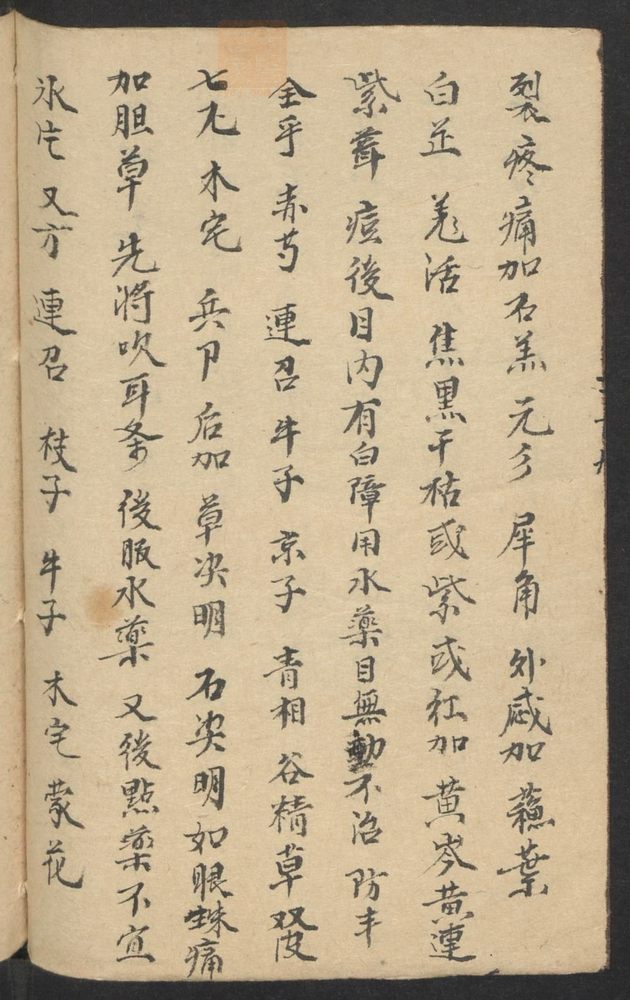 裂疼痛加石羔 元彡 犀角 外感加 蘓葉
白芷 羌活 焦黒干枯或紫或紅加 黄岑黄連
紫茸 痘後目内有白障用水藥目無動不治 防丰
全乎 赤芍 連召 牛子 京子 青相 谷精草 双皮
七九 木宅 兵卩 后加 草决明 石决明 如眼蛛痛
加胆草 先將吹耳条 後服水藥 又後點藥不宜
氷片 又方 連召 枝子 牛子 木宅 蒙花